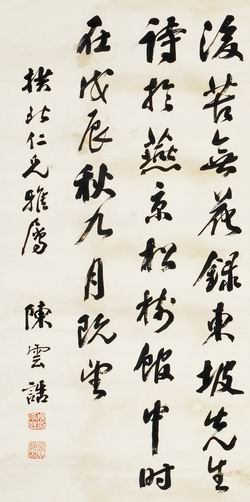 後苦無花錄東坡先生
詩於燕京松樹館中時
在戊辰秋九月既望
拱北仁兄雅屬
陳雲誥